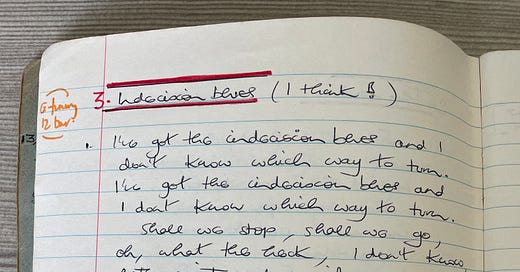 G-tuning
12 bar?
3. Indecision blues (I think!)
1. I've got the indecision blues and I
don't know which way to turn.
I've got the indecision blues and
I dont know which way to turn.
Shall we stop, shall we go,
oh, what the heck, I don't know,
13